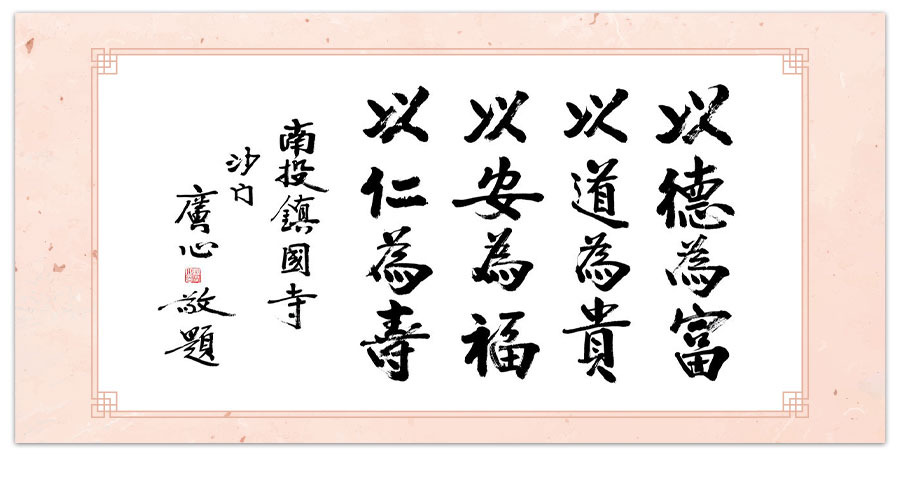 以德為富
以道為貴
以安為福
以仁為壽
南投鎮國寺
沙門
廣心
敬題